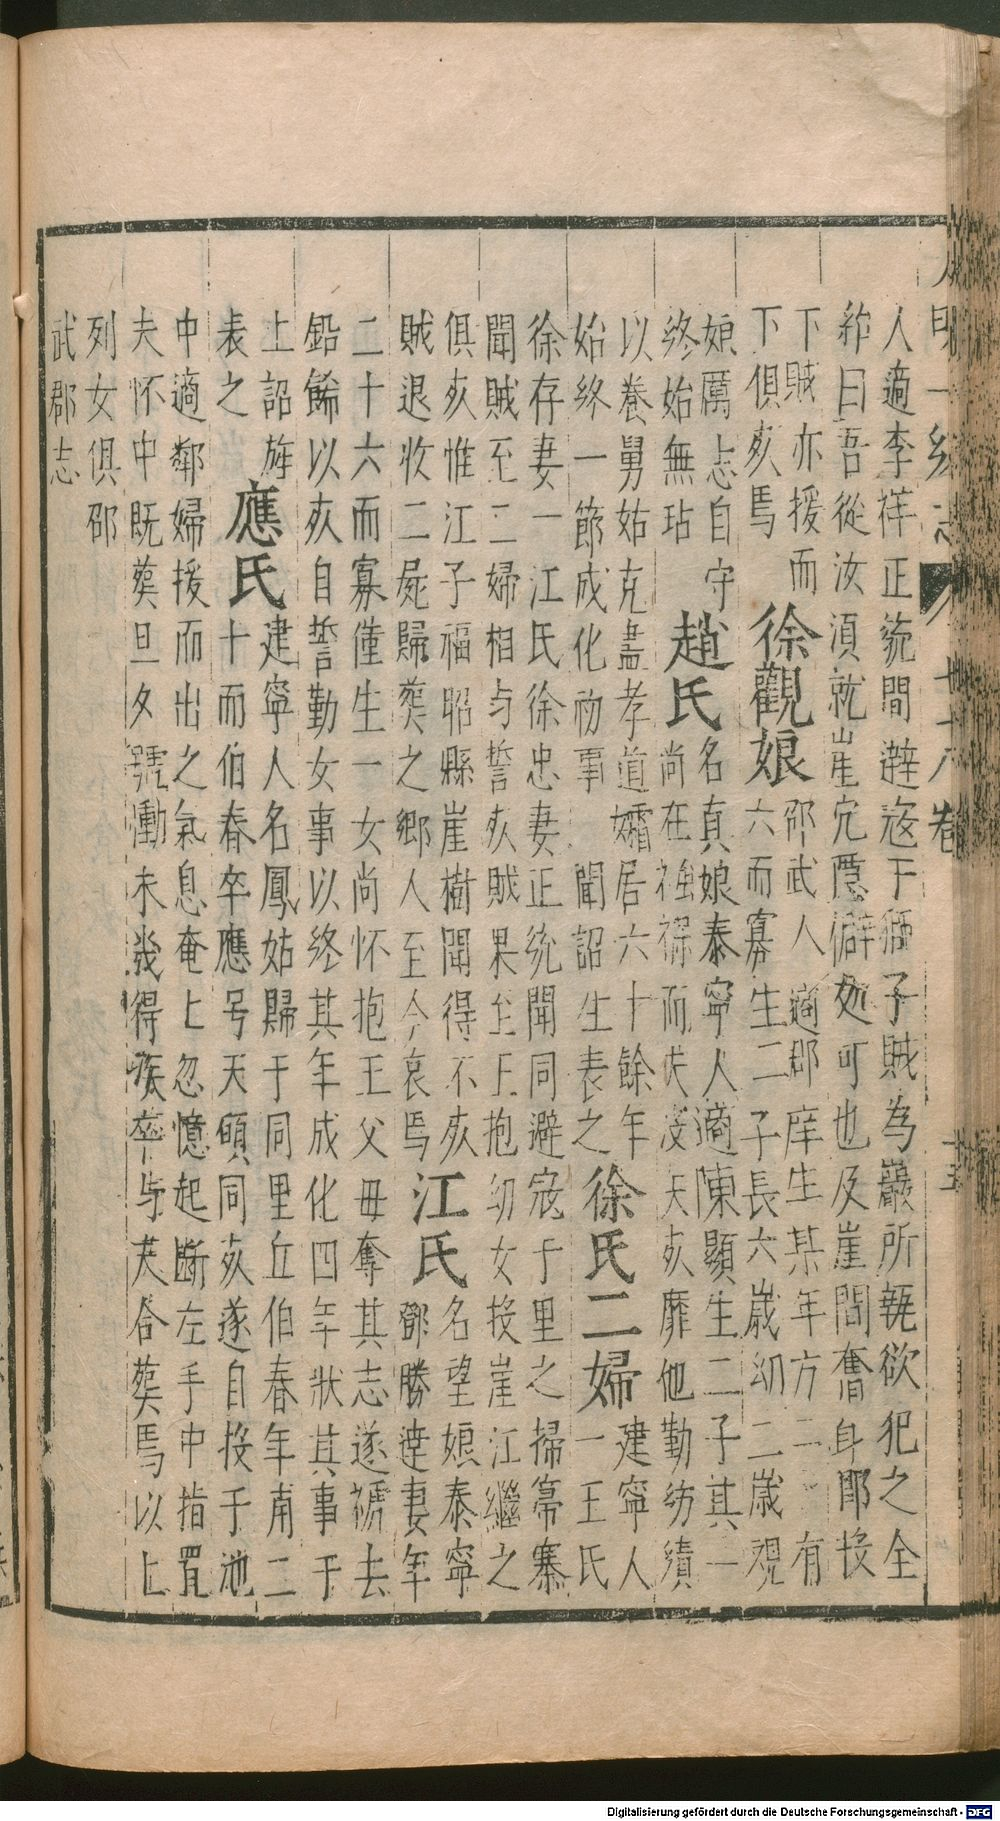 大明一統志 七十八卷 十五
人適李祥正統間避寇于獅子賊為嚴所執欲犯之全
紿曰吾從汝須就崖穴隱僻処可也及崖間奮身即投
下賊亦援而
下俱死焉
徐觀娘
邵武人適郡庠生某年方二十有
六而寡生二子長六歲幼二歲覌
娘厲志自守
終始無玷
趙氏
名真娘泰寧人適陳顯生二子其一
尚在襁褓而夫溘天死靡他勤紡績
以養舅姑克盡孝道孀居六十餘年
始終一節成化初事聞詔生表之
徐氏二婦
建寧人
一王氏
徐存妻一江氏徐忠妻正統間同避寇于里之掃箒寨
聞賊至二婦相与誓死賊果至王抱幼女投崖江繼之
俱死惟江子福昭縣崖樹間得不死
賊退收二屍歸葬之鄉人至今哀焉
江氏
名望娘泰寧
鄧勝達妻年
二十六而寡僅生一女尚怀抱王父毋奪其志遂褫去
鉛餙以死自誓勤女事以終其年成化四年狀其事于
上詔旌
表之
應氏
建寧人名鳳姑歸于同里丘伯春年甫二
十而伯春卒應号天願同死遂自投于池
中適鄰婦援而出之氣息奄上忽憶起斷左手中指置
夫怀中既葬旦夕號慟未幾得疾卒与夫合葬焉以上
列女俱邵
武郡志
Digitalisierung gefördert durch die Deutsche Forschungsgemeinschaft - DFG